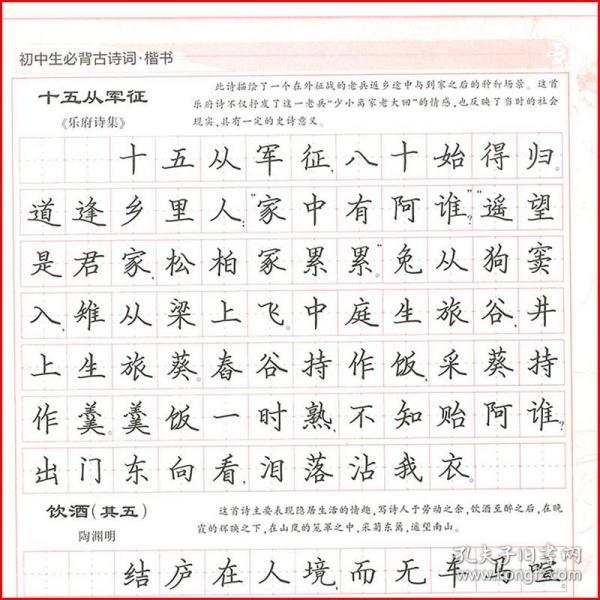 初中生必背古诗词·楷书
十五从军征
《乐府诗集》
此诗描绘了一个在外征战的老兵返乡途中与到家之后的种种场景。这首
乐府诗不仅抒发了这一老兵“少小离家老大回”的情感,也反映了当时的社会
现实,具有一定的史诗意义。
十五从军征,八十始得归。
道逢乡里人:“家中有阿谁?”“遥望
是君家,松柏冢累累。”兔从狗窦
入,雉从梁上飞。中庭生旅谷,井
上生旅葵。舂谷持作饭,采葵持
作羹。羹饭一时熟,不知贻阿谁?
出门东向看,泪落沾我衣。
饮酒(其五)
陶渊明
这首诗主要表现隐居生活的情趣,写诗人于劳动之余,饮酒至醉之后,在晚
霞的辉映之下,在山岚的笼罩之中,采菊东篱,遥望南山。
结庐在人境,而无车马喧。
孔夫子旧书网
www.kongfz.com